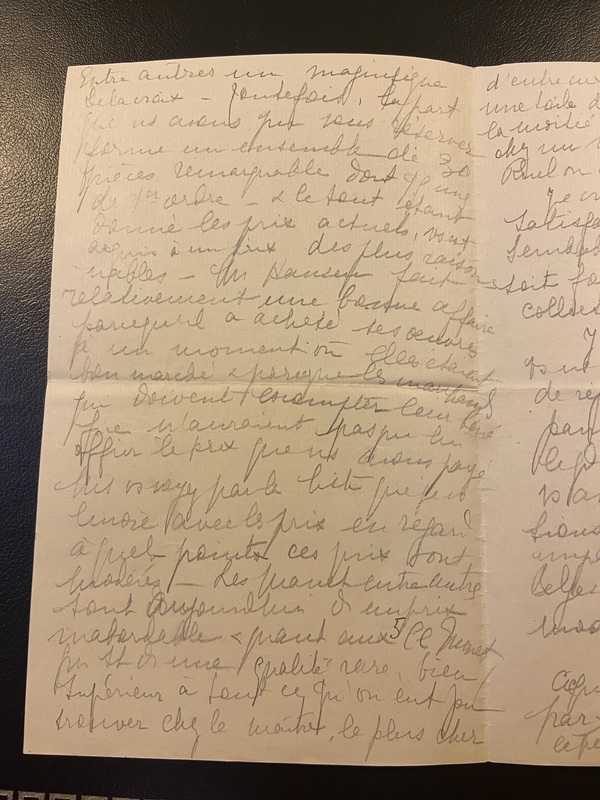 Entre autres un magnifique
Delacroix – Toutefois, la part
que ns avons pu vous réserver
forme un ensemble de 30
pièces remarquable dont
de 1er ordre – & le tout étant
donné les prix actuels, vs est
acquis à un prix des plus raison
nables – Mr Hansen fait
relativement une bonne affaire
parcequ'il a acheté ses œuvres
à un moment où elles étaient
bon marché & parceque les marchands
qui doivent escompter leur béné
fice n'auraient pas pu lui
offrir le prix que ns avons payé
vs voyez par la liste que
avec les prix en regard
à quel point ces prix sont
modérés – Les Manet entre autre
sont aujourdhui d'un prix
inabordable & quant aux 5 Cl Monet
ils st d'une qualité rare, bien
supérieur à tout ce qu'on eut pu
trouver chez le maître, le plus cher
d'entre eux
une toile d
la moitié
chez un
Je
satisfa
Sembl
soit fo
collec
vs
de ré
par
vs a
tions
Belges
mod
par